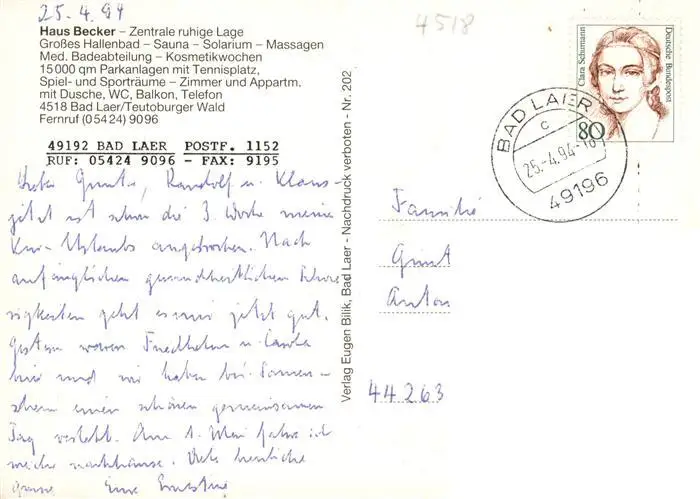 25.4.94
Haus Becker – Zentrale ruhige Lage
Großes Hallenbad – Sauna – Solarium – Massagen
Med. Badeabteilung – Kosmetikwochen
15000 qm Parkanlagen mit Tennisplatz,
Spiel- und Sporträume – Zimmer und Appartm.
mit Dusche, WC, Balkon, Telefon
4518 Bad Laer/Teutoburger Wald
Fernruf (05424) 9096
49192 BAD LAER POSTF. 1152
RUF: 05424 9096 – FAX: 9195
Liebe Randolf u. Klaus -
jetzt ist schon die 3. Woche meines
Kur-Urlaubs angebrochen. Nach
anfänglichen gesundheitlichen Schwie
rigkeiten geht es mir jetzt gut.
Gestern waren Friedhelm u. Carola
hier und wir haben bei Sonnen-
schein einen schönen gemeinsamen
Tag verlebt. Am 1. Mai fahre ich
wieder nachhause. Viele herzliche
Grüsse Eure Ernestine
Verlag Eugen Bilik, Bad Laer - Nachdruck verboten - Nr. 202
4518
Clara Schumann
Deutsche Bundespost
80
BAD LAER
c
25.-4.94-16
49196
Familie
Anton
44263